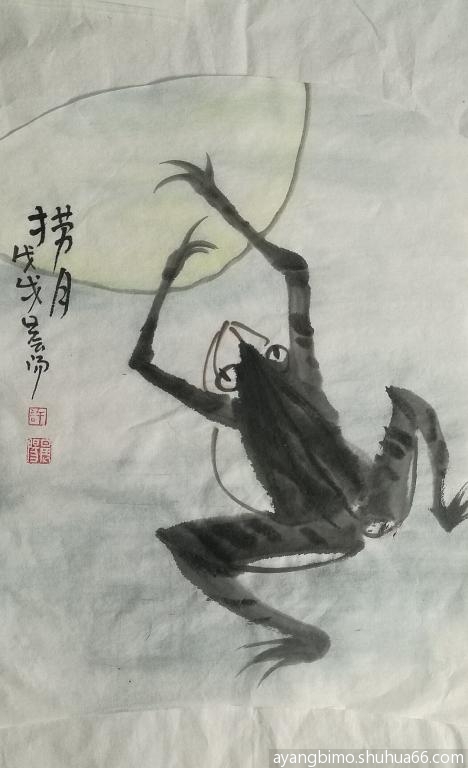 捞月
戊戌晨旸
许
ayangbimo.shuhua66.com